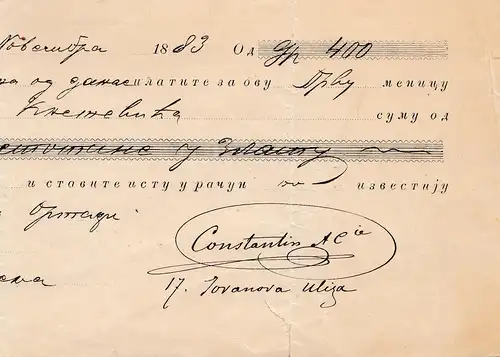 Новембра 1883 Од Др 400
од данас платите за ову Прву меницу
Кнежевића суму од
у злату
и ставите исту у рачун по известију
Constantin A Cie
17. Jovanova Uliza